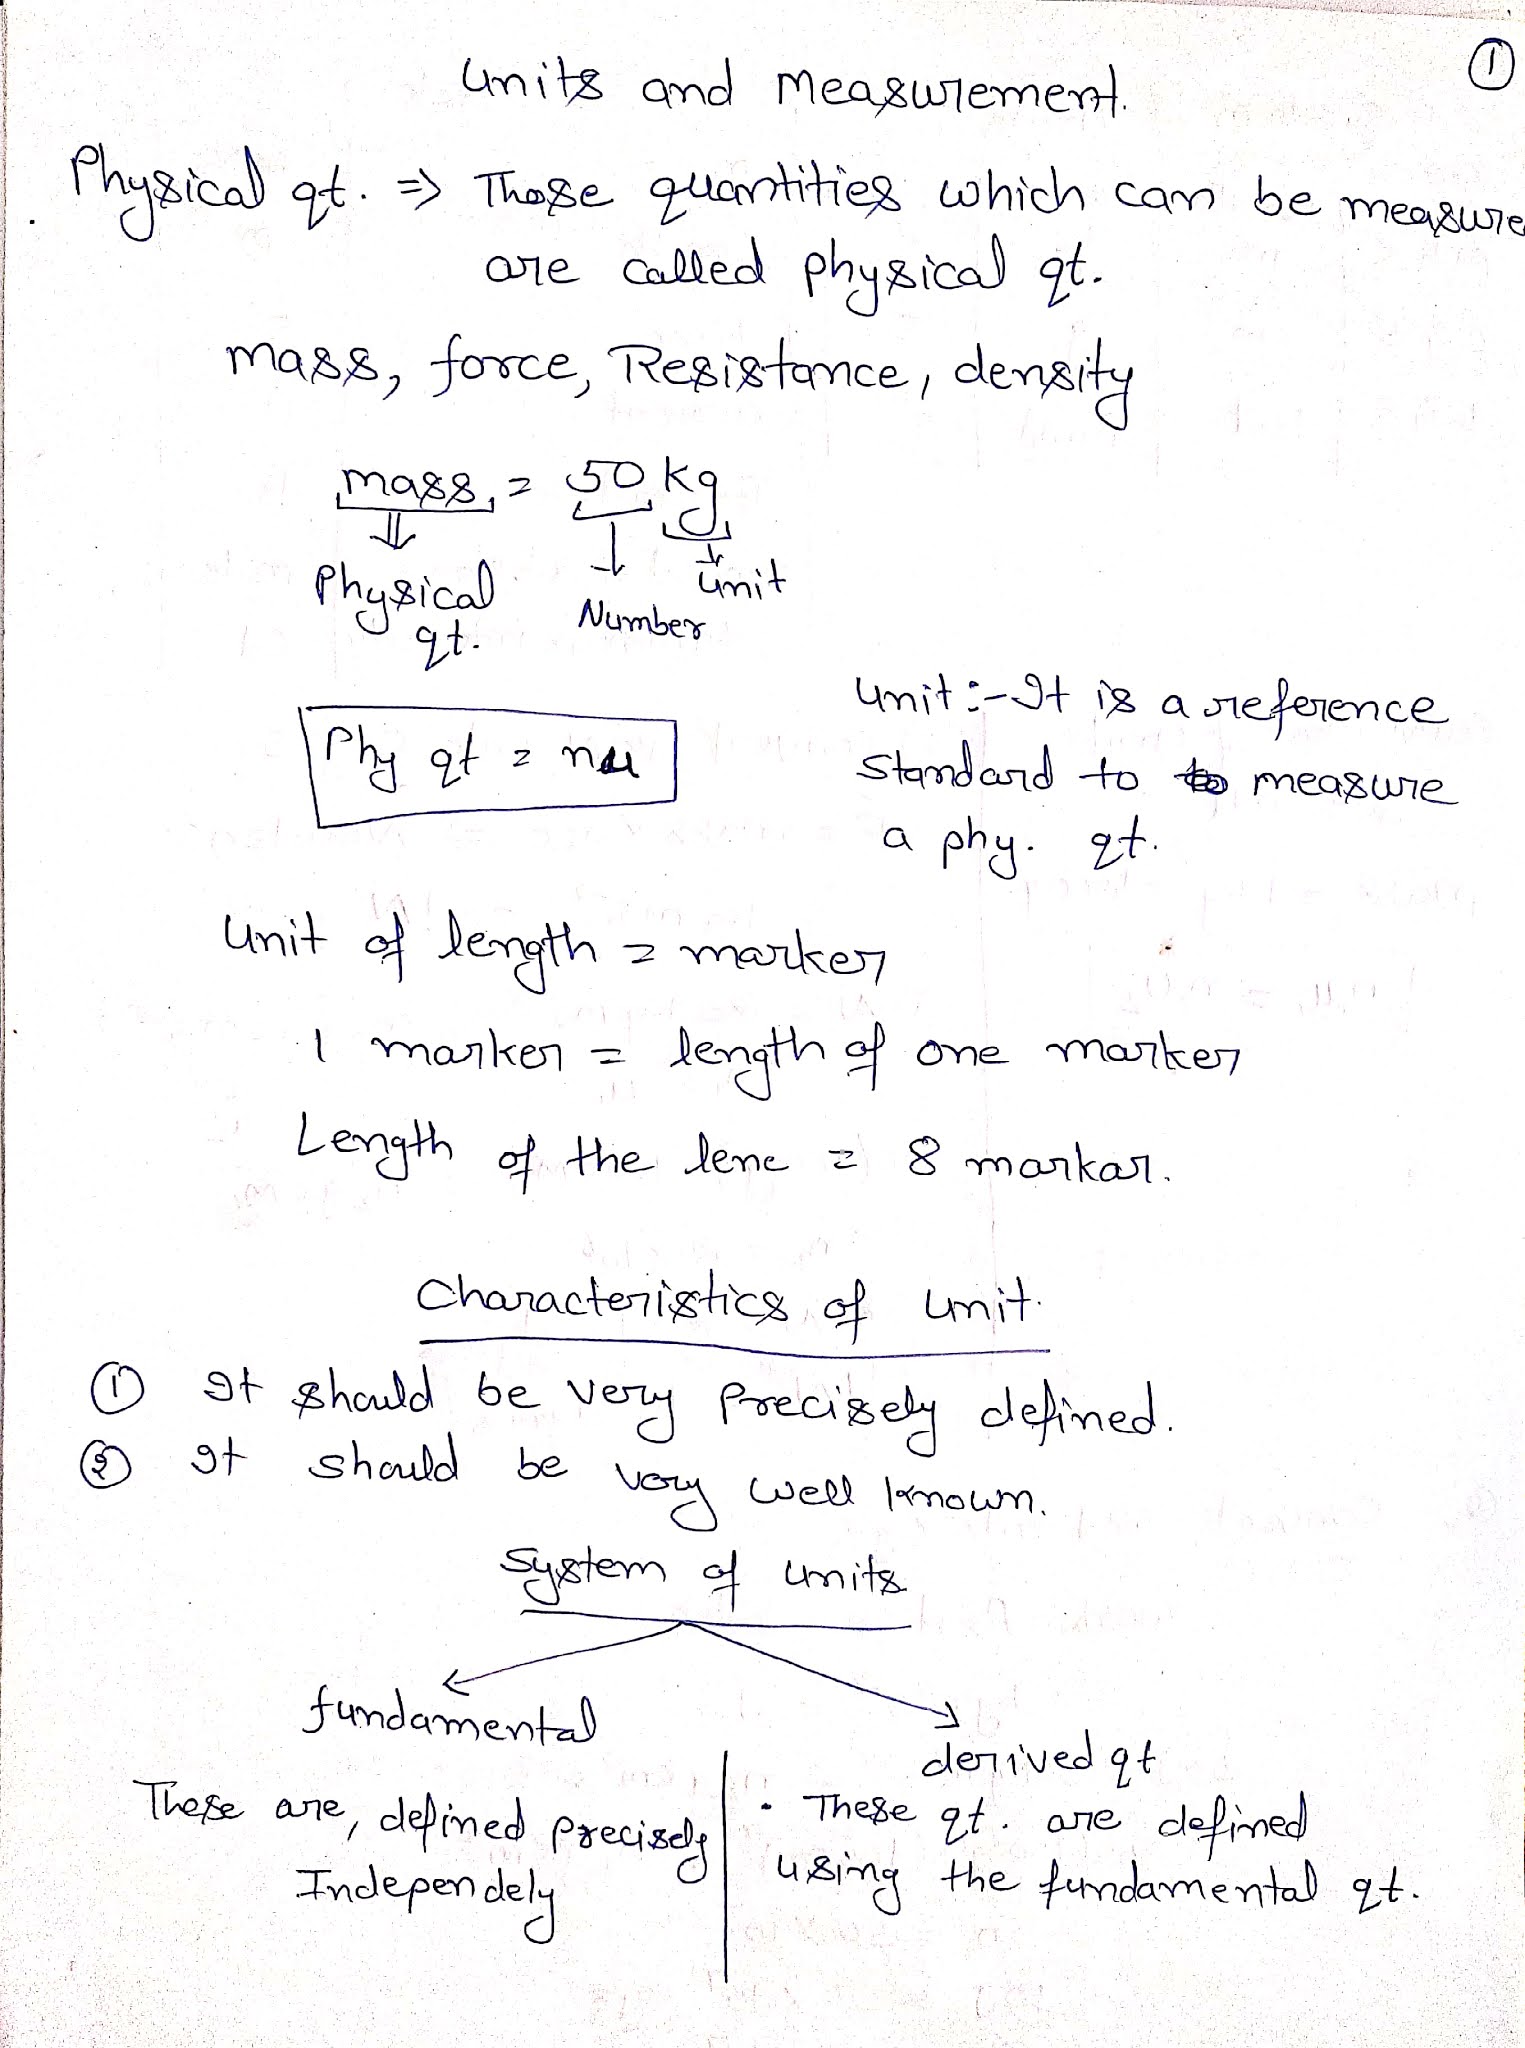 ①
Units and Measurement.
Physical qt. ⇒ Those quantities which can be measure
are called physical qt.
mass, force, Resistance, density
mass = 50 kg
Physical qt.
Number
unit
Phy qt = nu
unit :- It is a reference
standard to measure
a phy. qt.
Unit of length = marker
1 marker = length of one marker
Length of the lene = 8 markar.
Characteristics of unit.
① It should be very precisely defined.
② It should be very well known.
System of units
fundamental
derived qt
These are, defined precisely
Independely
• These qt. are defined
using the fundamental qt.